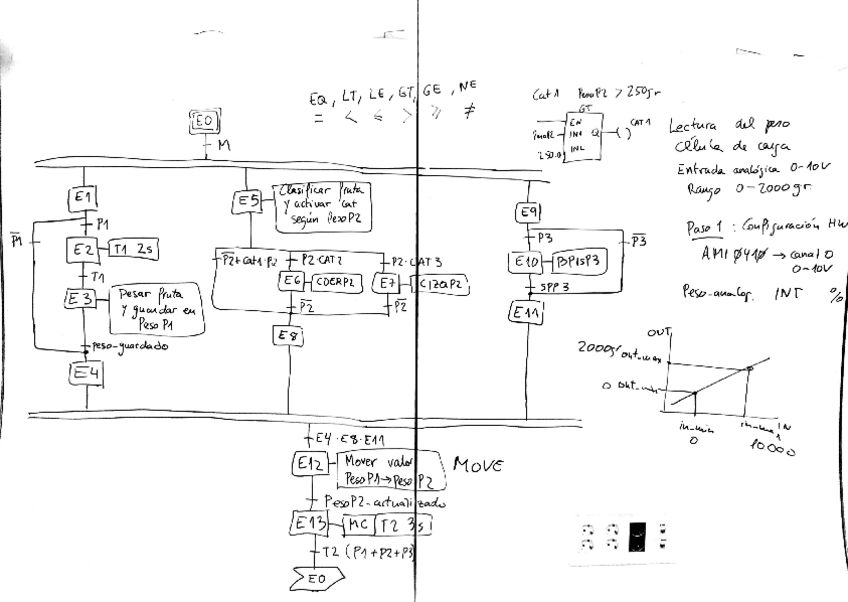 EQ, LT, LE, GT, GE, NE
= < ≤ > ≥ ≠
Cat1 PesoP2 > 250gr
GT
EN
PesoP2 IN1 Q ( ) CAT1
250.0 IN2
Lectura del peso
Célula de carga
Entrada analógica 0-10V
Rango 0-2000gr.
Paso 1: Configuración HW
AM1 0410 → canal 0
0-10V
Peso-analog. INT %
OUT
2000gr out_max
0 out_min
in_min
0
in_max
IN
10000
E0
M
E1
P1
P1
E2
T1 2s
T1
E3
Pesar fruta
y guardar en
Peso P1
peso-guardado
E4
E5
Clasificar fruta
y activar cat
según PesoP2
P2+Cat1·P2
P2·CAT2
P2·CAT3
E6
CDERP2
E7
CIZQP2
P2
P2
E8
E9
P3
P3
E10
BPISP3
SPP3
E11
E4·E8·E11
E12
Mover valor
PesoP1→Peso P2
MOVE
PesoP2-actualizado
E13
MC
T2 3s
T2 (P1+P2+P3)
E0